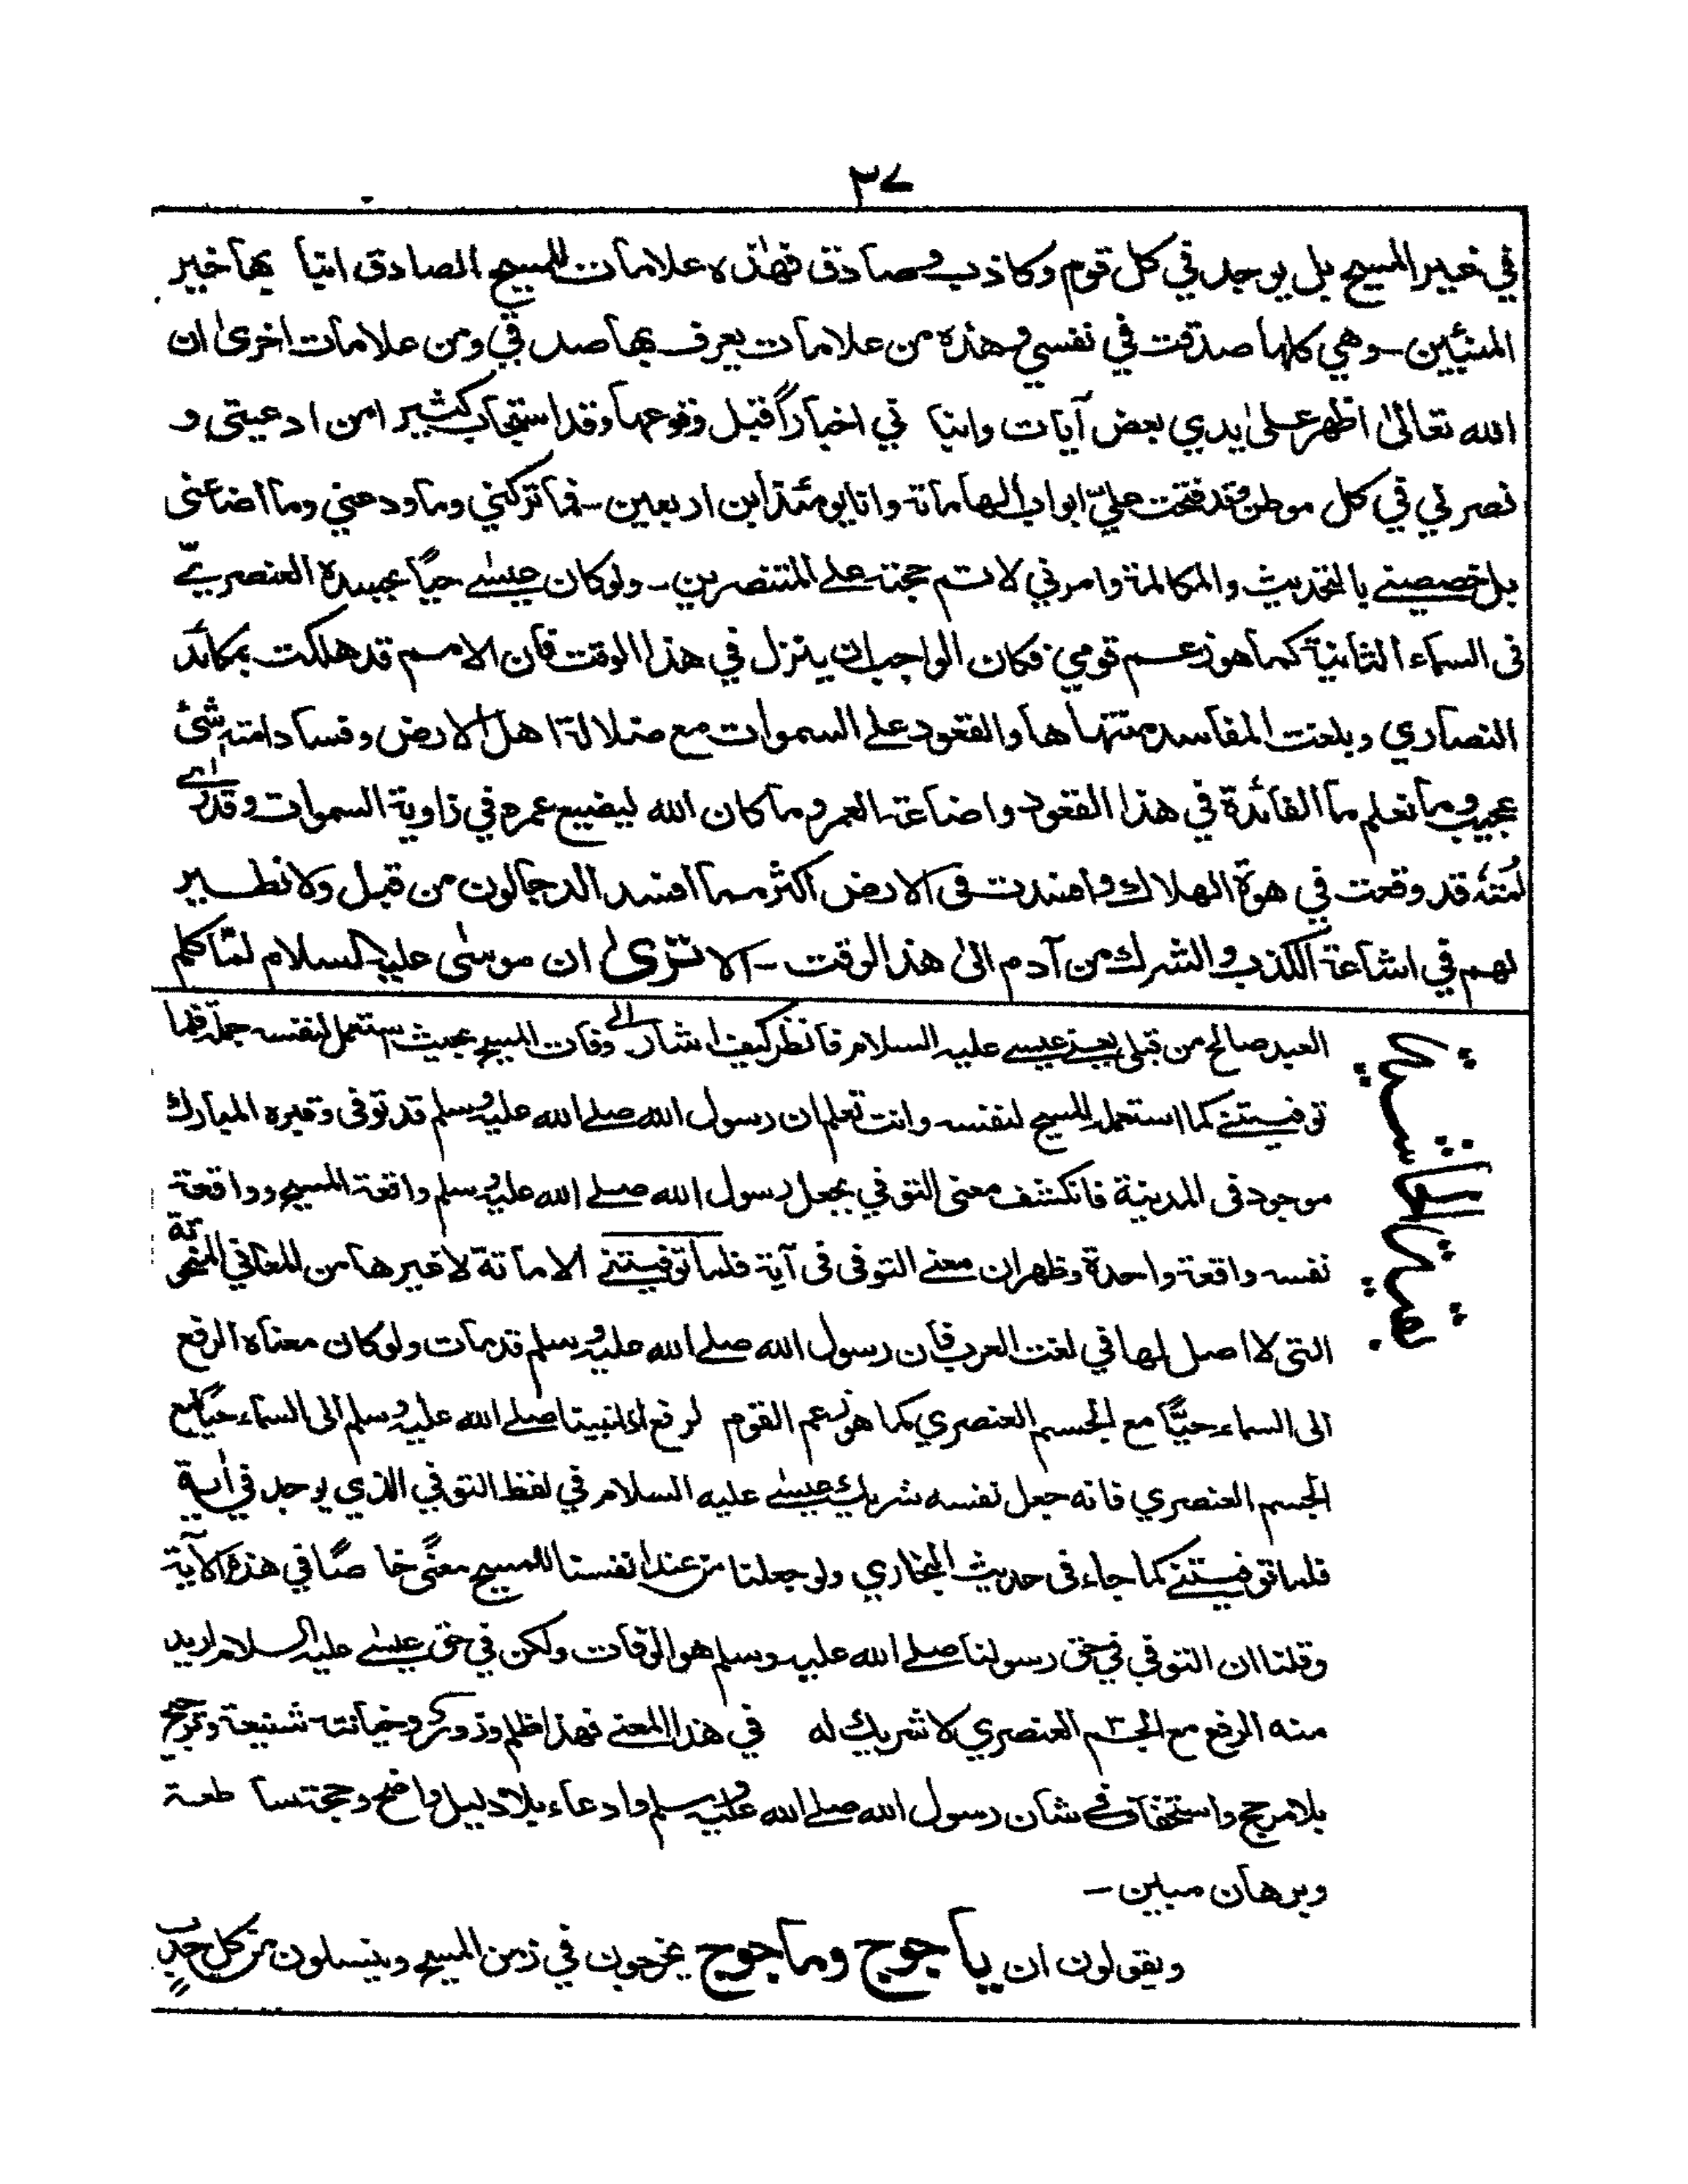 ٣٧
في غير المسيح بل يوجد في كل قوم وكاذب وصادق فهٰذه علامات للمسيح الصادق انبأ بها خير
المنبئين - وهي كلها صدقت في نفسي وهذه من علامات يعرف بها صدقي ومن علامات اخرىٰ ان
الله تعالىٰ اظهر علىٰ يدي بعض آيات وانبأ ني اخباراً قبل وقوعها وقد استجاب كثيرا من ادعيتي و
نصرني في كل موطن وقد فتحت عليّ ابواب الهاماتة وانا يومئذ ابن اربعين - فما تركني وما ودعني وما اضاعني
بل خصصني بالتحديث والمكالمة وامرني لاتم حجته علے المتنصرين - ولو كان عيسےٰ حيًّا بجسده العنصريّ
فى السماء الثانية كما هو زعم قومي فكان الواجب ان ينزل في هذا الوقت فان الامم قد هلكت بمكائد
النصاري وبلغت المفاسد منتهاها والقعود علے السموات مع ضلالة اهل الارض وفساد امته شئ
عجيب وما نعلم ما الفائدة في هذا القعود واضاعة العمر وما كان الله ليضيع عمره في زاوية السموات وقد راے
امته قد وقعت في هوة الهلاك وافسدت فى الارض اكثر مما افسد الدجالون من قبل ولا نظير
لهم في اشاعة الكذب والشرك من آدم الىٰ هذا الوقت - الا ترىٰ ان موسىٰ عليه السلام لمّا كلم
العبد صالح من قبلى يعنے عيسے عليه السلام فانظر كيف اشار الى وفات المسيح بحيث ستعمل لنفسه جملة فلما
توفيتنے كما استعمل المسيح لنفسه وانت تعلم ان رسول الله صلے الله عليه وسلم قد توفى وقبره المبارك
موجود فى المدينة فانكشف معنى التوفي بجعل رسول الله صلے الله عليه وسلم واقعة المسيح وواقعة
نفسه واقعة واحدة وظهر ان معنے التوفى فى آية فلما توفيتنے الاماتة لا غيرها من المعاني المنحوتة
التى لا اصل لها في لغت العرب فان رسول الله صلے الله عليه وسلم قد مات ولو كان معناه الرفع
الى السماء حيًّا مع الجسم العنصري كما هو زعم القوم لرفع اذاً نبينا صلے الله عليه وسلم الى السماء حيًّا مع
الجسم العنصري فانه جعل نفسه شريك عيسےٰ عليه السلام في لفظ التوفي الذي يوجد في اٰية
فلما توفيتنے كما جاء فى حديث البخاري ولو جعلنا من عند انفسنا للمسيح معنًى خاصًا في هذه الآية
وقلنا ان التوفي في حق رسولنا صلے الله عليه وسلم هو الوفات ولكن في حق عيسےٰ عليه السلام اريد
منه الرفع مع الجسم العنصري لا شريك له في هذا المعنے فهذا ظلم وزور وخيانت شنيعة وترجيح
بلا مرجح واستخفاف في شان رسول الله صلے الله عليه وسلم وادعاء بلا دليل واضح وحجة ساطعة
وبرهان مبين -
ويقولون ان ياجوج وماجوج يخرجون في زمن المسيح وينسلون من كل حدبٍ